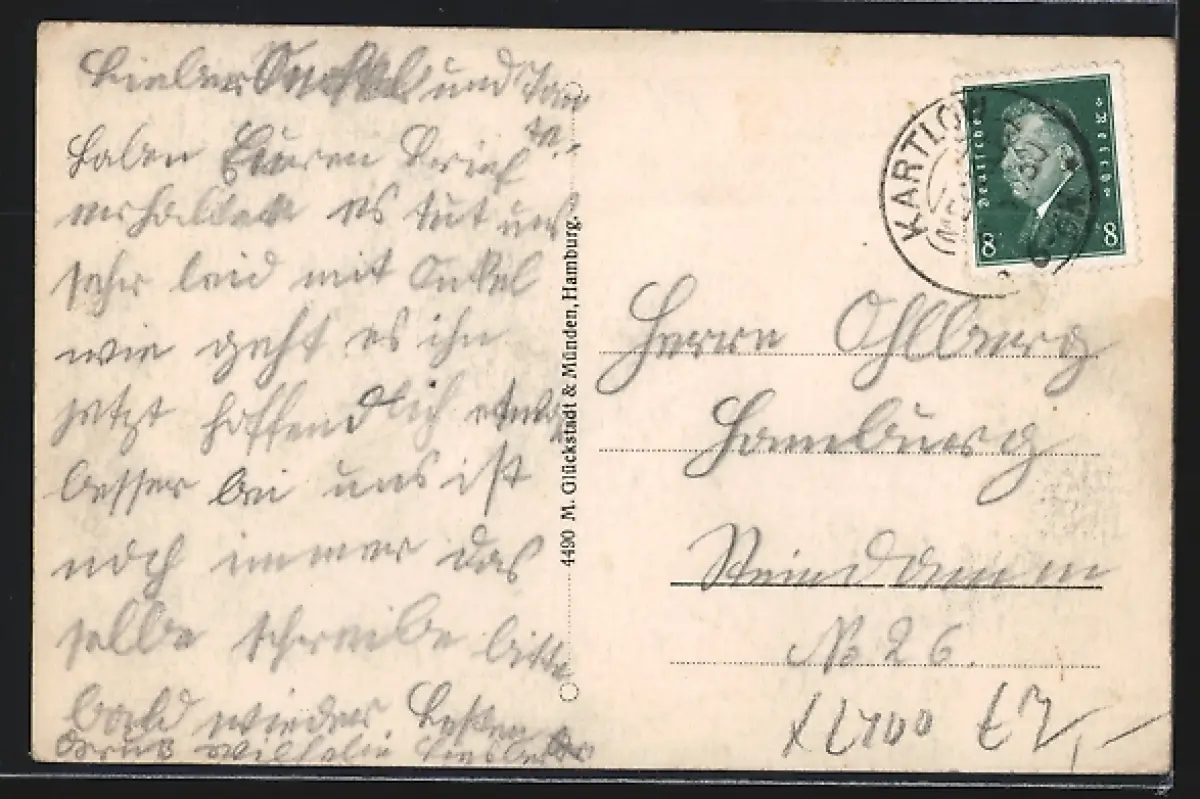 Lieber Onkel und Tan
te.
haben Eueren Brief
erhalten es tut uns
sehr leid mit Onkel
wie geht es ihn
jetzt hoffendlich etwas
besser bei uns ist
noch immer das
selbe schreibe bitte
bald wieder Besten
Gruß
4490 M. Glückstadt & Münden, Hamburg.
KARTLOW
Deutsches Reich
8 8
Herrn Ohlberg
Hamburg
Steinddamm
No 26.